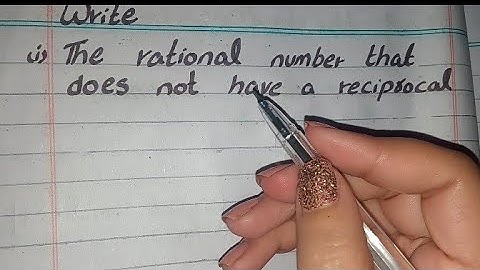 Write
(i) The rational number that
does not have a reciprocal